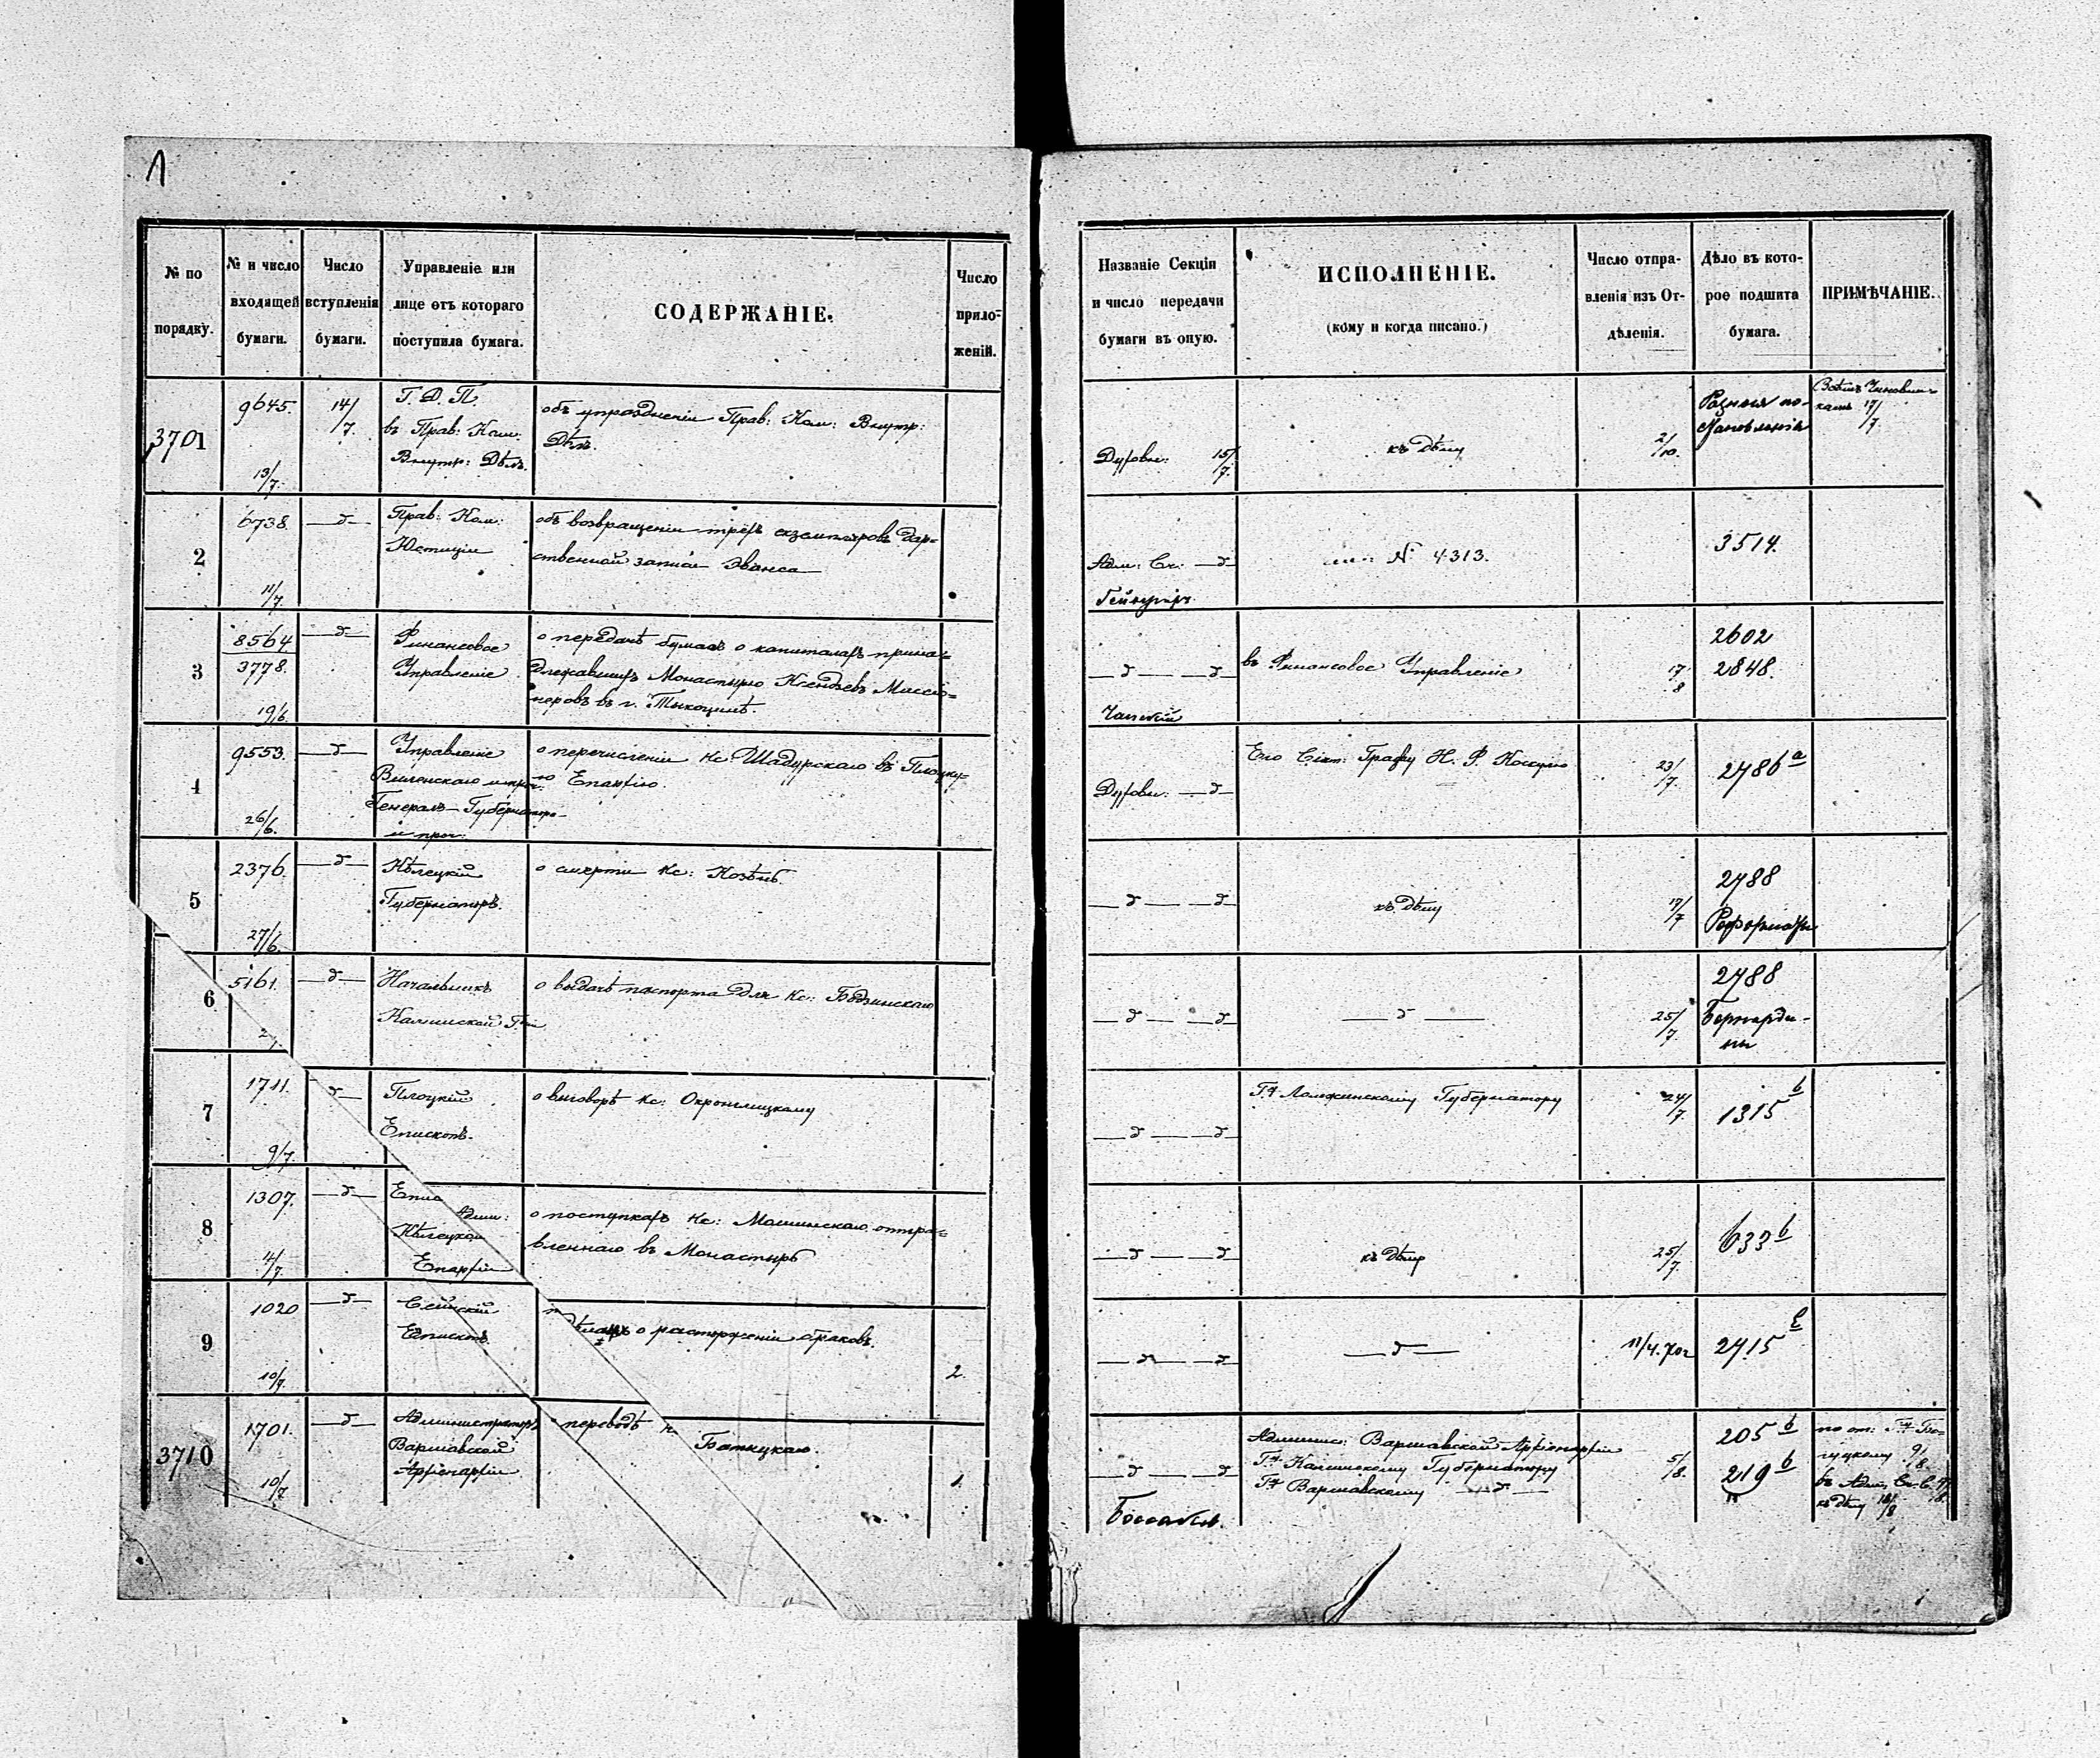 № по
порядку.
№ и число
входящей
бумаги.
Число
вступленія
бумаги.
Управленіе или
лице отъ котораго
поступила бумага.
СОДЕРЖАНІЕ.
Число
прило-
женій.
3701
9645.
13/7.
14/7.
Г. Д. П.
въ Прав: Ком:
Внутр: Дѣлъ.
объ упраздненіи Прав: Ком: Внутр:
Дѣлъ.
2
6738.
11/7.
—д—
Прав: Ком:
Юстиціи
объ возвращеніи трехъ екземпляровъ дар=
ственной записи Эванса
3
8564
3778.
19/6.
—д—
Финансовое
Управленіе
о передачѣ бумагъ о капиталахъ прина=
длежавшихъ Монастырю Ксендзевъ Миссіо=
неровъ въ г. Тыкоцинѣ.
4
9553.
26/6.
—д—
Управленіе
Виленскаго и проч:
Генералъ-Губернатора
и проч:
о перечисленіи Кс: Шадурскаго въ Плоцку-
ю Епархію.
5
2376.
27/6.
—д—
Кѣлецкій
Губернаторъ.
о смерти Кс:
6
5161.
—д—
Начальникъ
Калишской Губ
о выдачѣ паспорта для Кс:
7
1711.
9/7.
д—
Плоцкій
Епископъ.
о выговорѣ Кс:
8
1307.
11/7.
—д—
Епис
Адми:
Кѣлецкой
Епархіи
о поступкахъ Кс: Машинскаго отпра=
вленнаго въ Монастырь
9
1020
10/7.
—д—
Сейнскій
Епископъ.
дѣлахъ о расторженіи браковъ.
2.
3710
1701.
10/7
—д—
Администраторъ
Варшавской
Архіепархіи
переводѣ К
1.
Названіе Секціи
и число передачи
бумаги въ оную.
ИСПОЛНЕНІЕ.
(кому и когда писано.)
Число отпра-
вленія изъ От-
дѣленія.
Дѣло въ кото-
рое подшита
бумага.
ПРИМѢЧАНІЕ.
Духовн: 15/7.
къ дѣлу
2/10.
Разныя по-
становленія
Всѣмъ Чиновни-
камъ 17/7.
Адм: Ск: —д
№ 4313.
3514.
—д— —д
въ Финансовое Управленіе
17/8
2602
2848.
Духовн: —д—
Его Сіят: Графу
23/7.
2786 a
—д— —д
къ дѣлу
17/7
2788
Реформаты
—д— —д
—д—
25/7.
2788
Бернарди-
ны
—д— —д
Гну Ломжинскому Губернатору
24/7.
1315 b
—д— —д
къ дѣлу
25/7.
633 b
—д— —д
—д—
2415
—д— —д
Админис: Варшавской Архіепархіи
Гну Калишскому Губернатору
Гну Варшавскому —д—
5/8.
205 b
219 b
къ дѣлу